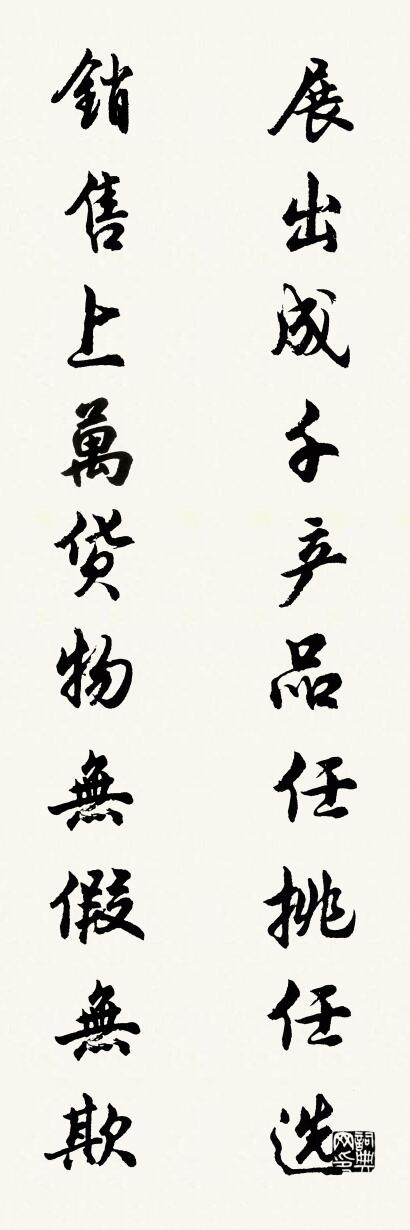 展出成千产品任挑任选
銷售上萬货物無假無欺